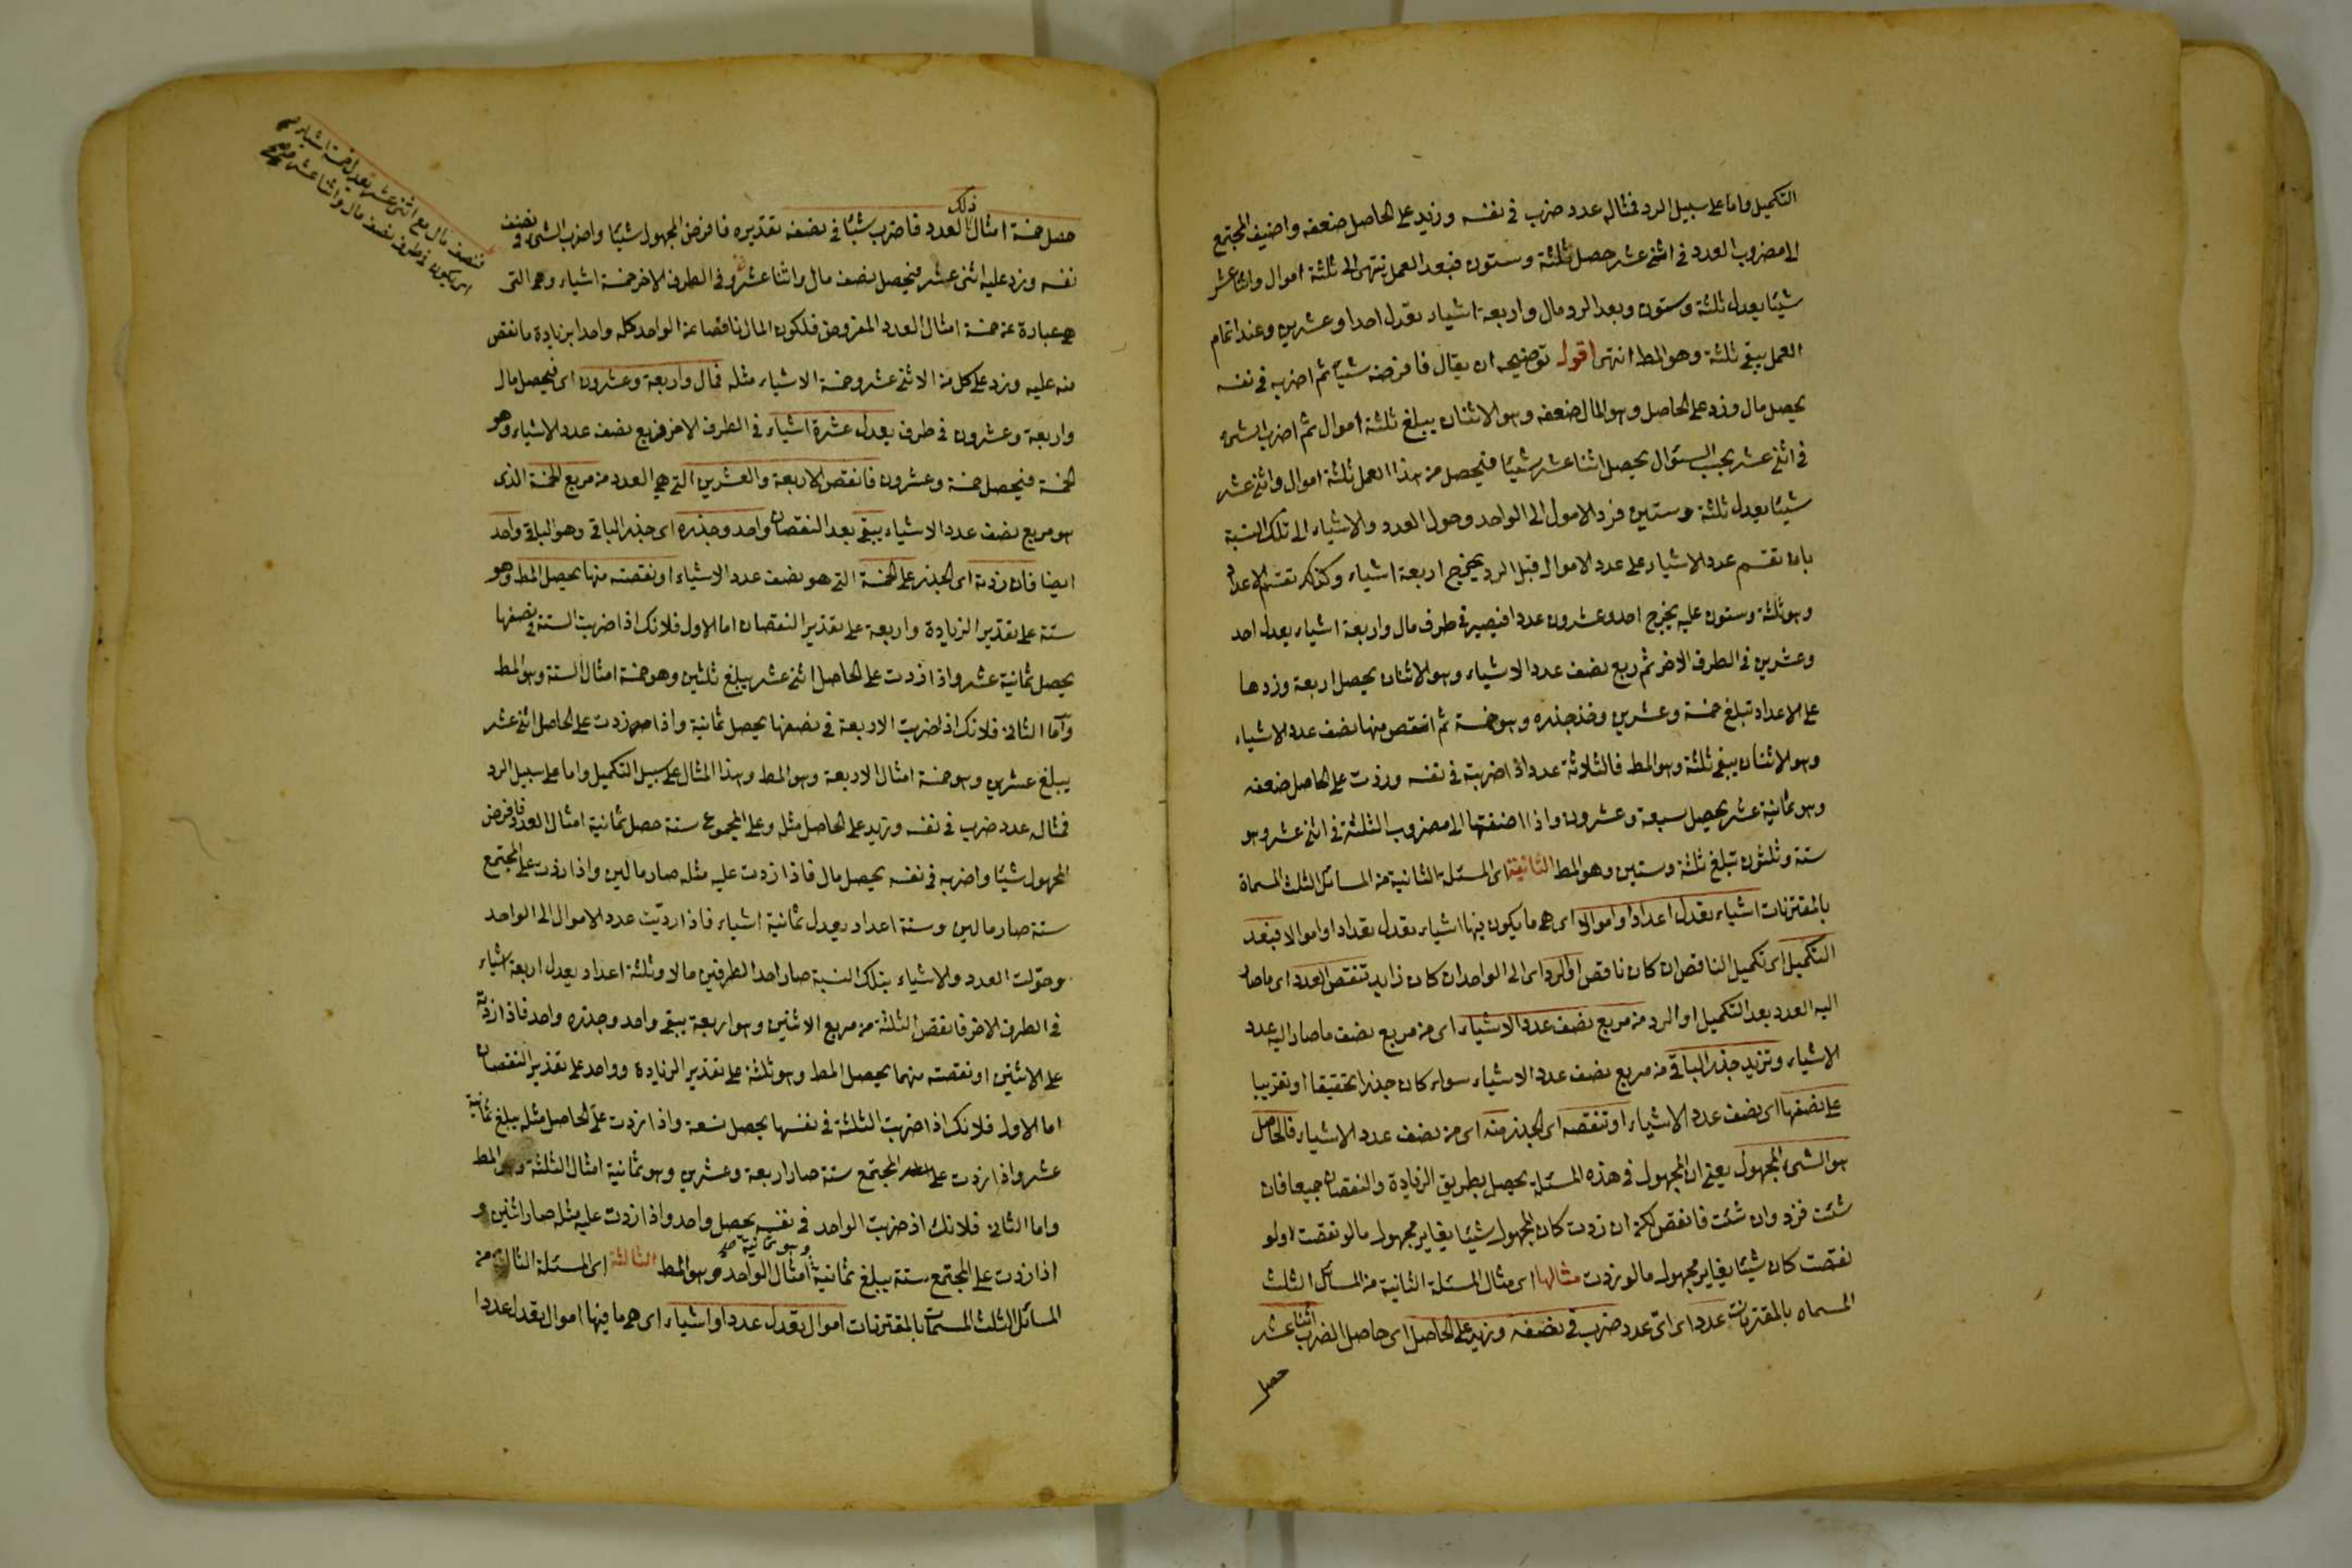 التكميل واما على سبيل الرد فمثاله عدد ضرب في نفسه وزيد على الحاصل ضعفه واضيف المجتمع
الا مضروب العدد في اثنى عشر حصل ثلثة وستون فبعد العمل تنتهى الى ثلثة اموال واثنا عشر
شيئا يعدل ثلثة وستون وبعد الرد مال واربعة اشياء يعدل احدا وعشرين وعند اتمام
العمل يبقى ثلثة وهو المط انتهى اقول توضيحه ان يقال فافرضه شيئا ثم اضربه في نفسه
يحصل مال وزد على الحاصل وهو المال ضعفه وهو الاثنان يبلغ ثلثة اموال ثم اضرب الشئ
في اثنى عشر بحسب السؤال يحصل اثنا عشر شيئا فيحصل من هذا العمل ثلثة اموال واثنى عشر
شيئا يعدل ثلثة وستين فرد الاموال الى الواحد وحول العدد والاشياء الى تلك النسبة
بان تقسم عدد الاشياء على عدد الاموال قبل الرد يخرج اربعة اشياء وكذلك تقسم الاعداد
وهو ثلثة وستون عليه يخرج احد وعشرون عددا فيصير في طرف مال واربعة اشياء يعدل احد
وعشرين في الطرف الاخر ثم ربع نصف عدد الاشياء وهو الاثنان يحصل اربعة وزدها
على الاعداد تبلغ خمسة وعشرين وخذ جذره وهو خمسة ثم انتقص منها نصف عدد الاشياء
وهو الاثنان يبقى ثلثة وهو المط فالثلاثة عدد اذا ضربته في نفسه وزدت على الحاصل ضعفه
وهو ثمانية عشر يحصل سبعة وعشرون واذا اضفتها الى مضروب الثلثة في اثنى عشر وهو
ستة وثلثون تبلغ ثلثة وستين وهو المط الثانية اى المسئلة الثانية من المسائل الثلث المسماة
بالمقترنات اشياء يعدل اعدادا واموالا اى هى ما يكون فيها اشياء يعدل تعدادا واموالا فبعد
التكميل اى تكميل الناقص ان كان ناقص او الرد اى الى الواحد ان كان زايد تنقص العدد اى ماصار
اليه العدد بعد التكميل او الرد من مربع نصف عدد الاشياء اى من مربع نصف ماصار اليه عدد
الاشياء وتزيد جذر الباقى من مربع نصف عدد الاشياء سواء كان جذرا تحقيقا او تقريبا
على نصفها اى نصف عدد الاشياء او تنقصه اى الجذر منه اى من نصف عدد الاشياء فالحاصل
هو الشئ المجهول يعنى ان المجهول في هذه المسئلة يحصل بطريق الزيادة والنقصان جميعا فان
شئت فزد وان شئت فانقص لكن ان زدت كان المجهول شيئا يغاير مجهول مالو نقصت ولو
نقصت كان شيئا يغاير مجهول مالو زدت مثالها اى مثال المسئلة الثانية من المسائل الثلث
المسماه بالمقترنات عدد اى اى عدد ضرب في نصفه وزيد على الحاصل اى حاصل الضرب اثنا عشر
حصل
حصل خمسة امثال ذلك العدد فاضرب شيئا في نصفه تقديره فافرض المجهول شيئا واضرب الشئ في نصف
نفسه وزد عليه اثنى عشر فيحصل نصف مال واثنا عشر وفي الطرف الاخر خمسة اشياء وهى التى
هى عبارة عن خمسة امثال العدد المفروض فلكون المال ناقصا عن الواحد كله واحدا بزيادة ما نقص
منه عليه وزد على كل من الاثنى عشر وخمسة الاشياء مثله فمال واربعة وعشرون اى فيحصل مال
واربعة وعشرون في طرف يعدل عشرة اشياء في الطرف الاخر فربع نصف عدد الاشياء وهو
الخمسة فيحصل خمسة وعشرون فانقص الاربعة والعشرين التى هى العدد من مربع الخمسة الذى
هو مربع نصف عدد الاشياء يبقى بعد النقصان واحد وجذره اى جذر الباقى وهو الباقى واحد
ايضا فان زدته اى الجذر على الخمسة التى هو نصف عدد الاشياء او نقصته منها يحصل المط وهو
ستة على تقدير الزيادة واربعة على تقدير النقصان اما الاول فلانك اذا ضربت الستة في نصفها
يحصل ثمانية عشر واذا زدت على الحاصل اثنى عشر يبلغ ثلثين وهو خمسة امثال الستة وهو المط
واما الثانى فلانك اذا ضربت الاربعة في نصفها يحصل ثمانية واذا زدت على الحاصل اثنى عشر
يبلغ عشرين وهو خمسة امثال الاربعة وهو المط وهذا المثال على سبيل التكميل واما على سبيل الرد
فمثاله عدد ضرب في نفسه وزيد على الحاصل مثله وعلى المجموع ستة حصل ثمانية امثال العدد فافرض
المجهول شيئا واضربه في نفسه يحصل مال فاذا زدت عليه مثله صار مالين واذا زدت على المجتمع
ستة صار مالين وستة اعداد يعدل ثمانية اشياء فاذا رديت عدد الاموال الى الواحد
وحولت العدد والاشياء بتلك النسبة صار احد الطرفين مالا وثلثة اعداد يعدل اربعة اشياء
في الطرف الاخر فانقص الثلثة من مربع الاثنين وهو اربعة يبقى واحد وجذره واحد فاذا زدته
على الاثنين او نقصته منهما يحصل المط وهو ثلثة على تقدير الزيادة وواحد على تقدير النقصان
اما الاول فلانك اذا ضربت الثلثة في نفسها يحصل تسعة واذا زدت على الحاصل مثله يبلغ ثمانية
عشر واذا زدت على المجتمع ستة صار اربعة وعشرين وهو ثمانية امثال الثلثة وهو المط
واما الثانى فلانك اذ ضربت الواحد في نفسه يحصل واحد واذا زدت عليه مثله صار اثنين و
اذا زدت على المجتمع ستة يبلغ ثمانية وهو ثمانية امثال الواحد وهو المط الثالثة اى المسئلة الثالثة من
المسائل الثلث المسمات بالمقترنات اموال يعدل عددا واشياء اى هى ما فيها اموال يعدل عددا
فنصف مال مع اثنى عشر يعدل خمسة اشياء
اى يكون في طرف نصف مال واثنا عشر